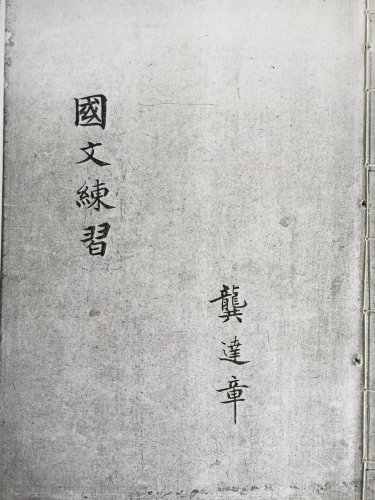 國文練習
龔達章